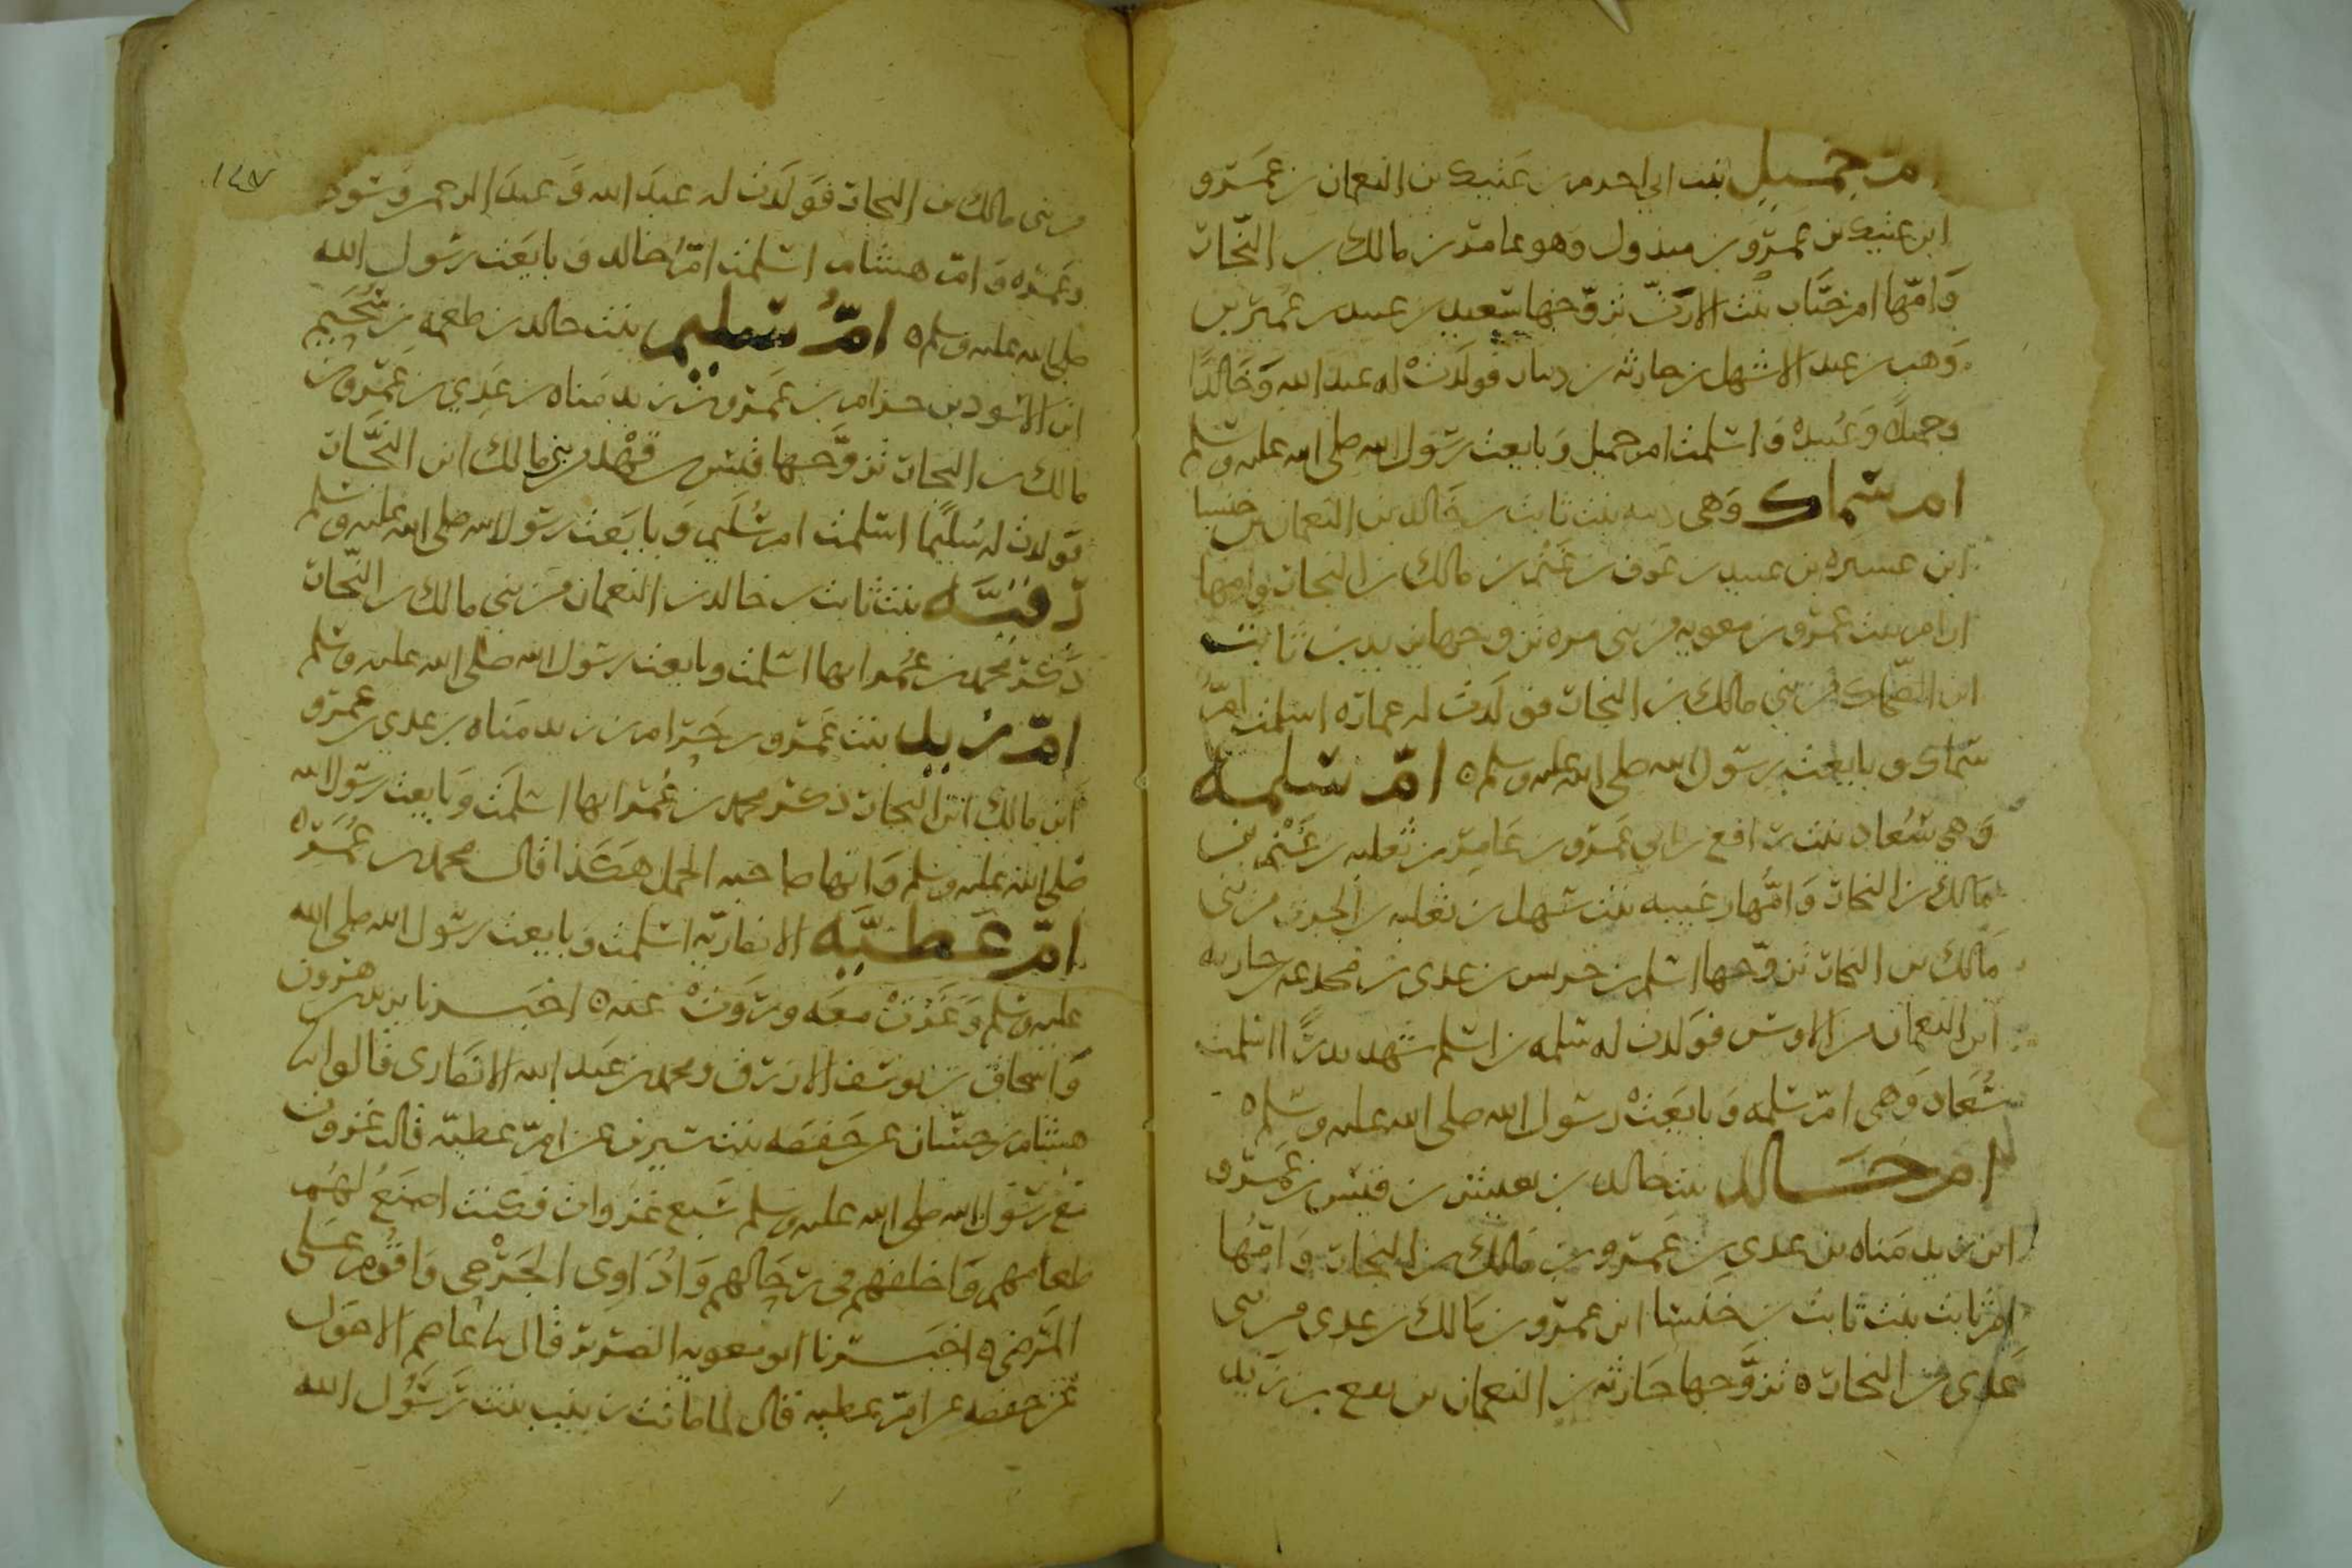 ام جميل بنت ابي احزم بن عتيك بن النعمان بن عمرو
ابن عتيك بن عمرو بن مبذول وهو عامر بن مالك بن النجار
وامها ام بنت الارت تزوجها سعيد بن عبيد بن عمير بن
وهب بن عبد الاشهل بن حارثة بن دينار فولدت له عبد الله وخالدا
وجميلة وعبيدة واسلمت ام جميل وبايعت رسول الله صلى الله عليه وسلم
ام سماك وهي دبيه بنت ثابت بن خالد بن النعمان بن خنسا
ابن عسيرة بن عبيد بن عوف بن غنم بن مالك بن النجار وامها
ادام بنت عمرو بن معوية من بني مرة تزوجها يزيد بن ثابت
ابن الضحاك من بني مالك بن النجار فولدت له عمارة اسلمت ام
سماك وبايعت رسول الله صلى الله عليه وسلم ه ام سلمة
وهي سعاد بنت رافع بن ابي عمرو بن عامر بن ثعلبة بن غنم بن
مالك بن النجار وامها رغيبة بنت سهل بن ثعلبة بن الحرث من بني
مالك بن النجار تزوجها اسلم بن حريس بن عدي بن مجدعة بن حارثة
ابن النعمان من الاوس فولدت له سلمة بن اسلم شهد بدرا اسلمت
سعاد وهي ام سلمة وبايعت رسول الله صلى الله عليه وسلم ه
ام خالد بنت خالد بن يعيش بن قيس بن عمرو
ابن زيد مناة بن عدي بن عمرو بن مالك بن النجار وامها
ام ثابت بنت ثابت بن خنسا ابن عمرو بن مالك بن عدي من بني
عدي من النجار ه تزوجها حارثة بن النعمان بن نفع بن زيد
١٤٧
من بني مالك بن النجار فولدت له عبد الله وعبد الرحمن وسودة
وعمرة وام هشام اسلمت ام خالد وبايعت رسول الله
صلى الله عليه وسلم ه ام سليم بنت خالد بن طعمة بن سحيم
ابن الاسود بن حرام بن عمرو بن زيد مناة بن عدي بن عمرو بن
مالك بن النجار تزوجها قيس بن قهد من بني مالك ابن النجار
فولدت له سليما اسلمت ام سليم وبايعت رسول الله صلى الله عليه وسلم
بنت ثابت بن خالد بن النعمان من بني مالك بن النجار
ذكر محمد بن عمر انها اسلمت وبايعت رسول الله صلى الله عليه وسلم
ام زيد بنت عمرو بن حرام بن زيد مناة بن عدي بن عمرو
ابن مالك ابن النجار ذكر محمد بن عمر انها اسلمت وبايعت رسول الله
صلى الله عليه وسلم وانها صاحبة الجمل هكذا قال محمد بن عمر ه
ام عطية الانصارية اسلمت وبايعت رسول الله صلى الله
عليه وسلم وغزت معه وروت عنه ه اخبرنا يزيد بن هرون
واسحاق بن يوسف الازرق ومحمد بن عبد الله الانصاري قالوا نا
هشام بن حسان عن حفصة بنت سيرين عن ام عطية قالت غزوت
مع رسول الله صلى الله عليه وسلم سبع غزوات فكنت اصنع لهم
طعامهم واخلفهم في رحالهم واداوي الجرحى واقوم على
المرضى ه اخبرنا ابو معوية الضرير قال نا عاصم الاحول
عن حفصة عن ام عطية قال لما ماتت زينب بنت رسول الله